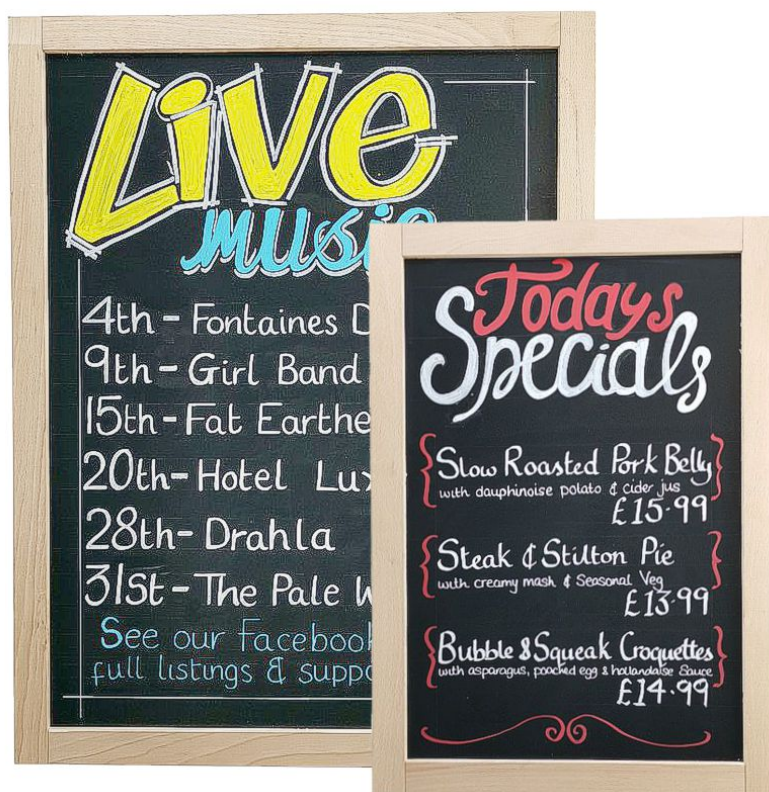 Live
music
4th - Fontaines D
9th - Girl Band
15th - Fat Earthe
20th - Hotel Lux
28th - Drahla
31st - The Pale W
See our facebook
full listings & suppo
Todays
Specials
Slow Roasted Pork Belly
with dauphinoise potato & cider jus
£15.99
Steak & Stilton Pie
with creamy mash & Seasonal Veg
£13.99
Bubble & Squeak Croquettes
with asparagus, poached egg & hollandaise Sauce
£14.99